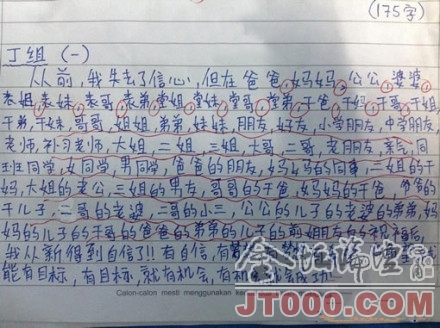 (175字)
丁组 (一)
从前,我失去了信心,但在爸爸,妈妈,公公,婆婆
表姐,表妹,表哥,表弟,堂姐,堂妹,堂哥,堂弟,干爸,干妈,干哥,干姐,
干弟,干妹,哥哥,姐姐,弟弟,妹妹,朋友,好友,小学朋友,中学朋友,
老师,补习老师,大姐,二姐,三姐,大哥,二哥,老朋友,
班同学,女同学,男同学,爸爸的朋友,妈妈的同事,二姐的干
妈,大姐的老公,三姐的男友,哥哥的干爸,妈妈的干爸,爷爷的
干儿子,二哥的老婆,二哥的小三,公公的儿子的老婆的弟弟,妈
妈的儿子的干哥的爸爸的弟弟的儿子的前姐夫的祝福后,
我从新得到自信了!!有自信,有
能有目标,有目标,就有机会,有机会 成功!
Calon-calon mesti menggunakan
JT000.COM